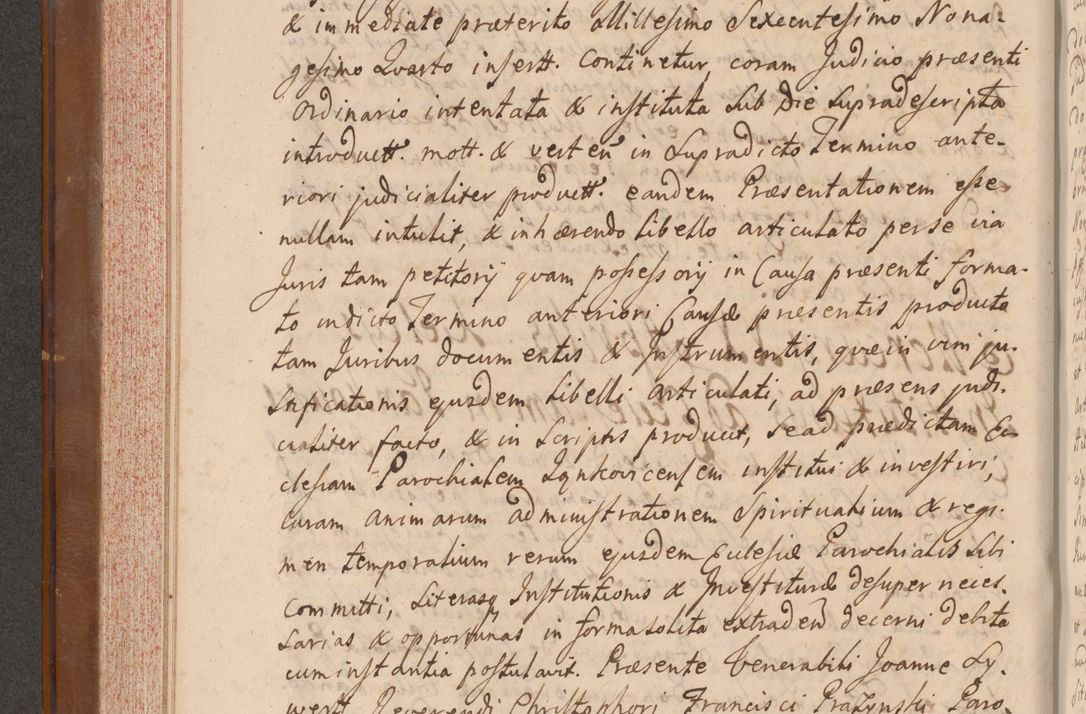 & immediate præterito Millesimo Sexcentesimo Nona-
gesimo Quarto insertt. continetur, coram Judicio præsenti
Ordinario intentata & instituta sub Die supradescripta
introductt. mott. & verten in supradicto Termino ante-
riori judicialiter productt. eandem Præsentationem esse
nullam intulit, & inhærendo libello articulato per se via
Juris tam petitorij quam possessorij in Causa præsenti forma-
to in dicto Termino anteriori Causæ præsentis producto
tam Juribus documentis & Instrumentis, quæ in vim ju-
stificationis ejusdem libelli articulati, ad præsens judi-
cialiter facto, & in scriptis producit, se ad prædictam Ec-
clesiam Parochialem institui & investiri,
curam animarum administrationem Spiritualium & regi-
men temporalium rerum ejusdem Ecclesiæ Parochialis sibi
committi, Literasq Institutionis & Investituræ desuper neces-
sarias & opportunas in forma solita extraden decerni debita
cum instantia postulavit. Præsente Venerabili Joanne Ly-
Reverendi Christophori Francisci Paro-